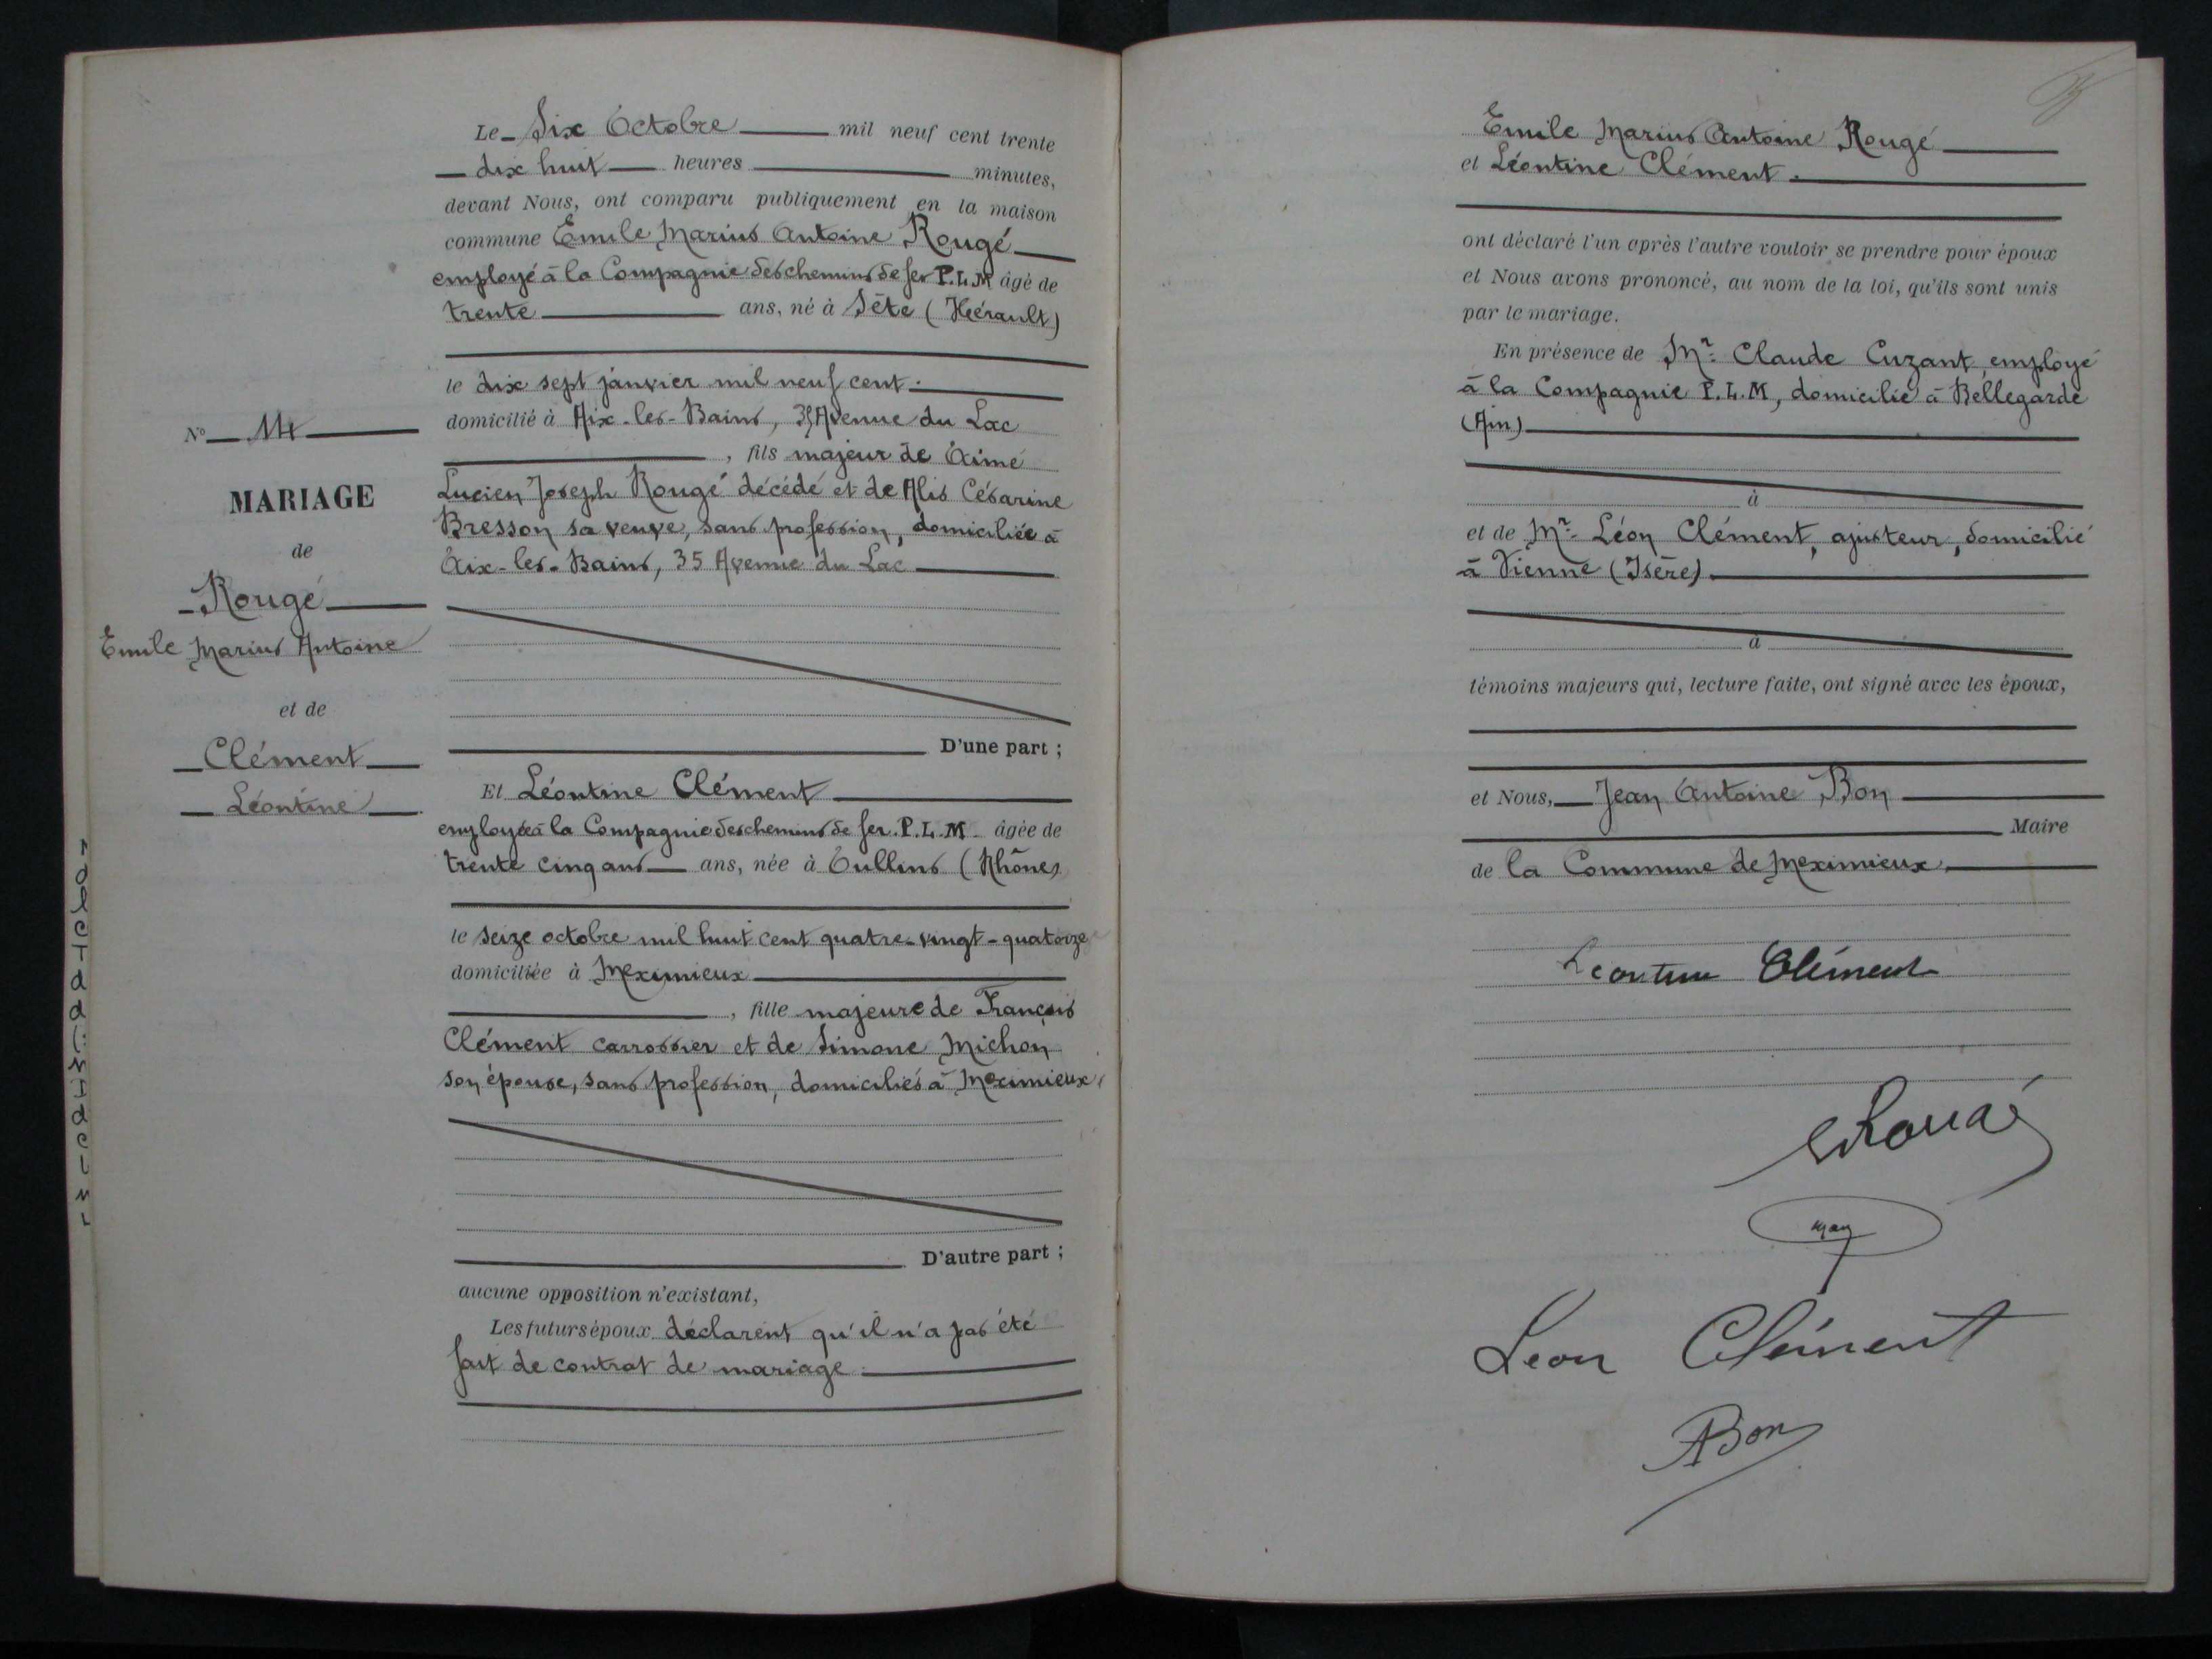 Le Six Octobre mil neuf cent trente
dix huit heures minutes,
devant Nous, ont comparu publiquement en la maison
commune Emile Marius Antoine Rougé
employé à la Compagnie des chemins de fer P.L.M âgé de
trente ans, né à Sète (Hérault)
le dix sept janvier mil neuf cent.
domicilié à Aix-les-Bains, 35 Avenue du Lac
, fils majeur de Aimé
Lucien Joseph Rougé décédé et de Alis Césarine
Bresson sa veuve, sans profession, domiciliée à
Aix-les-Bains, 35 Avenue du Lac
D'une part ;
Et Léontine Clément
employée à la Compagnie des chemins de fer P.L.M. âgée de
trente cinq ans ans, née à Oullins (Rhône)
le seize octobre mil huit cent quatre-vingt-quatorze
domiciliée à Meximieux
, fille majeure de François
Clément carrossier et de Simone Michon
son épouse, sans profession, domiciliés à Meximieux
D'autre part ;
aucune opposition n'existant,
Les futurs époux déclarent qu'il n'a pas été
fait de contrat de mariage.
N° 14
MARIAGE
de
Rougé
Emile Marius Antoine
et de
Clément
Léontine
Emile Marius Antoine Rougé
et Léontine Clément.
ont déclaré l'un après l'autre vouloir se prendre pour époux
et Nous avons prononcé, au nom de la loi, qu'ils sont unis
par le mariage.
En présence de Mr. Claude Cuzant, employé
à la Compagnie P.L.M, domicilié à Bellegarde
(Ain)
à
et de Mr. Léon Clément, ajusteur, domicilié
à Vienne (Isère).
à
témoins majeurs qui, lecture faite, ont signé avec les époux,
et Nous, Jean Antoine Bon
Maire
de la Commune de Meximieux.
Leontine Clément
Rougé
Leon Clément
ABon